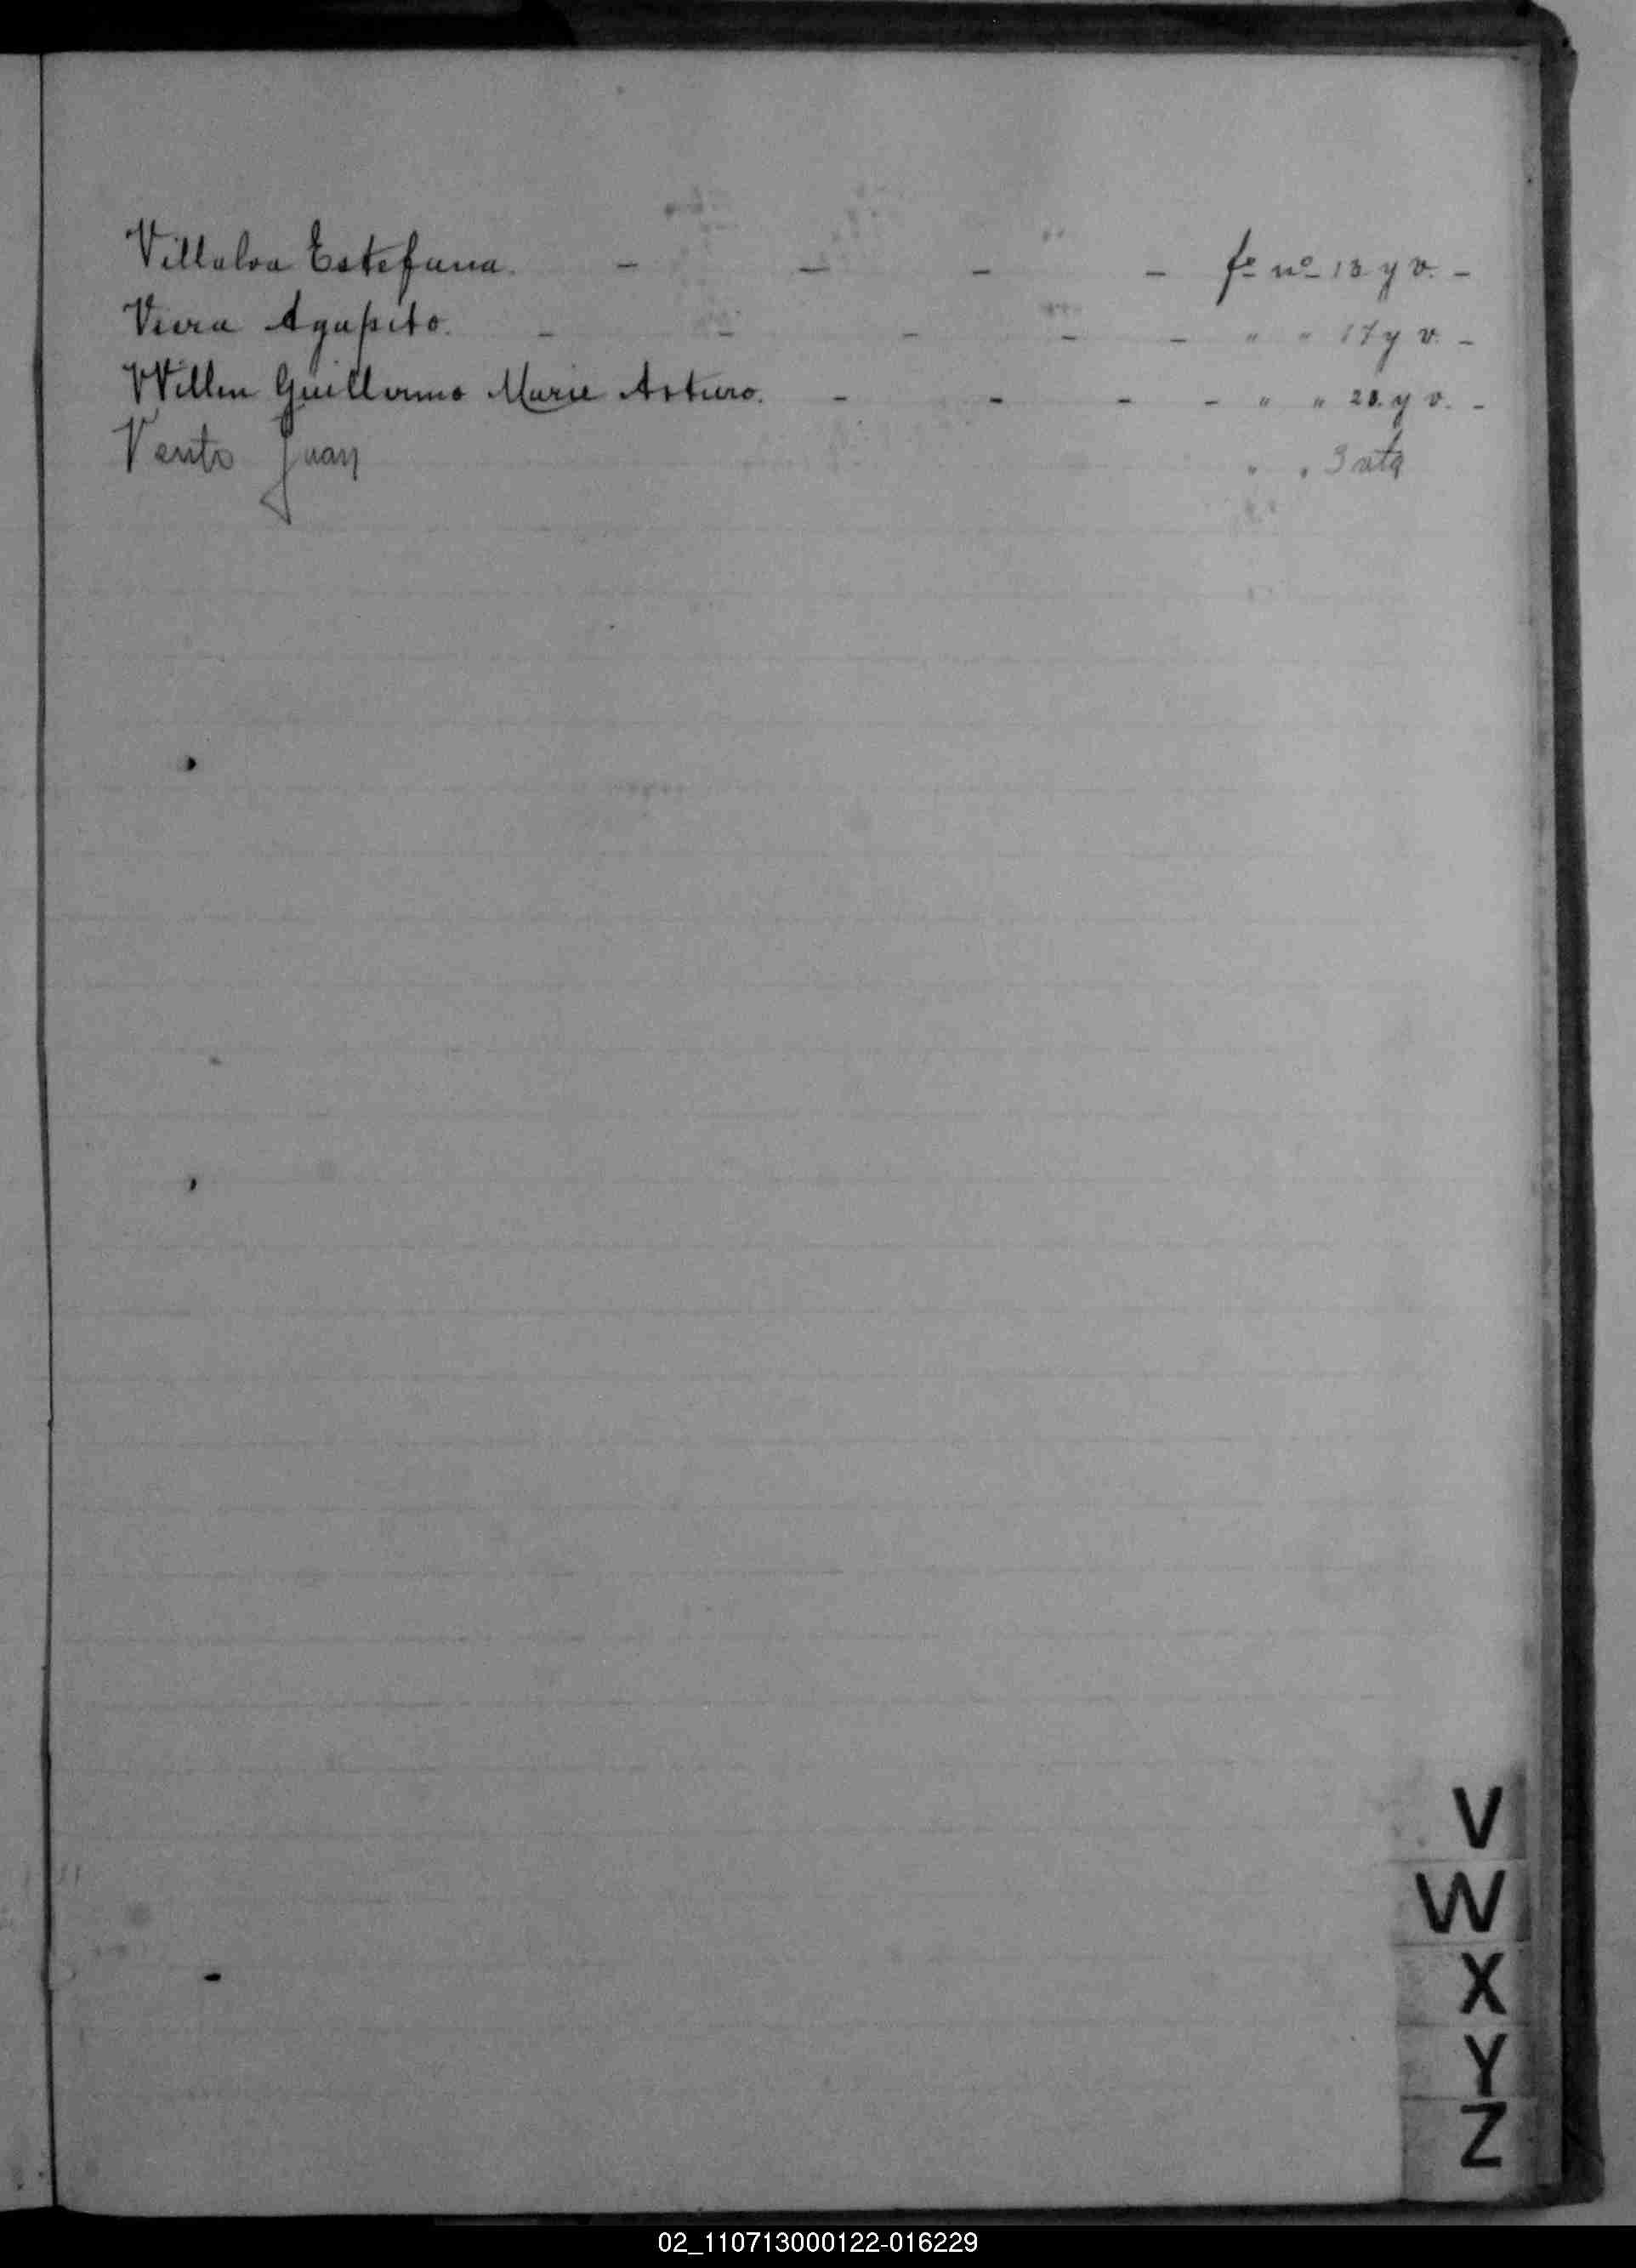 Villaloa Estefana. - - - - fº nº 18 y v. -
Viera Agapito. - - - - - " " 17 y v. -
Willen Guillermo Marie Arturo. - - - - " " 20. y v. -
Vento Juan " " 3 vta
V
W
X
Y
Z
02_110713000122-016229